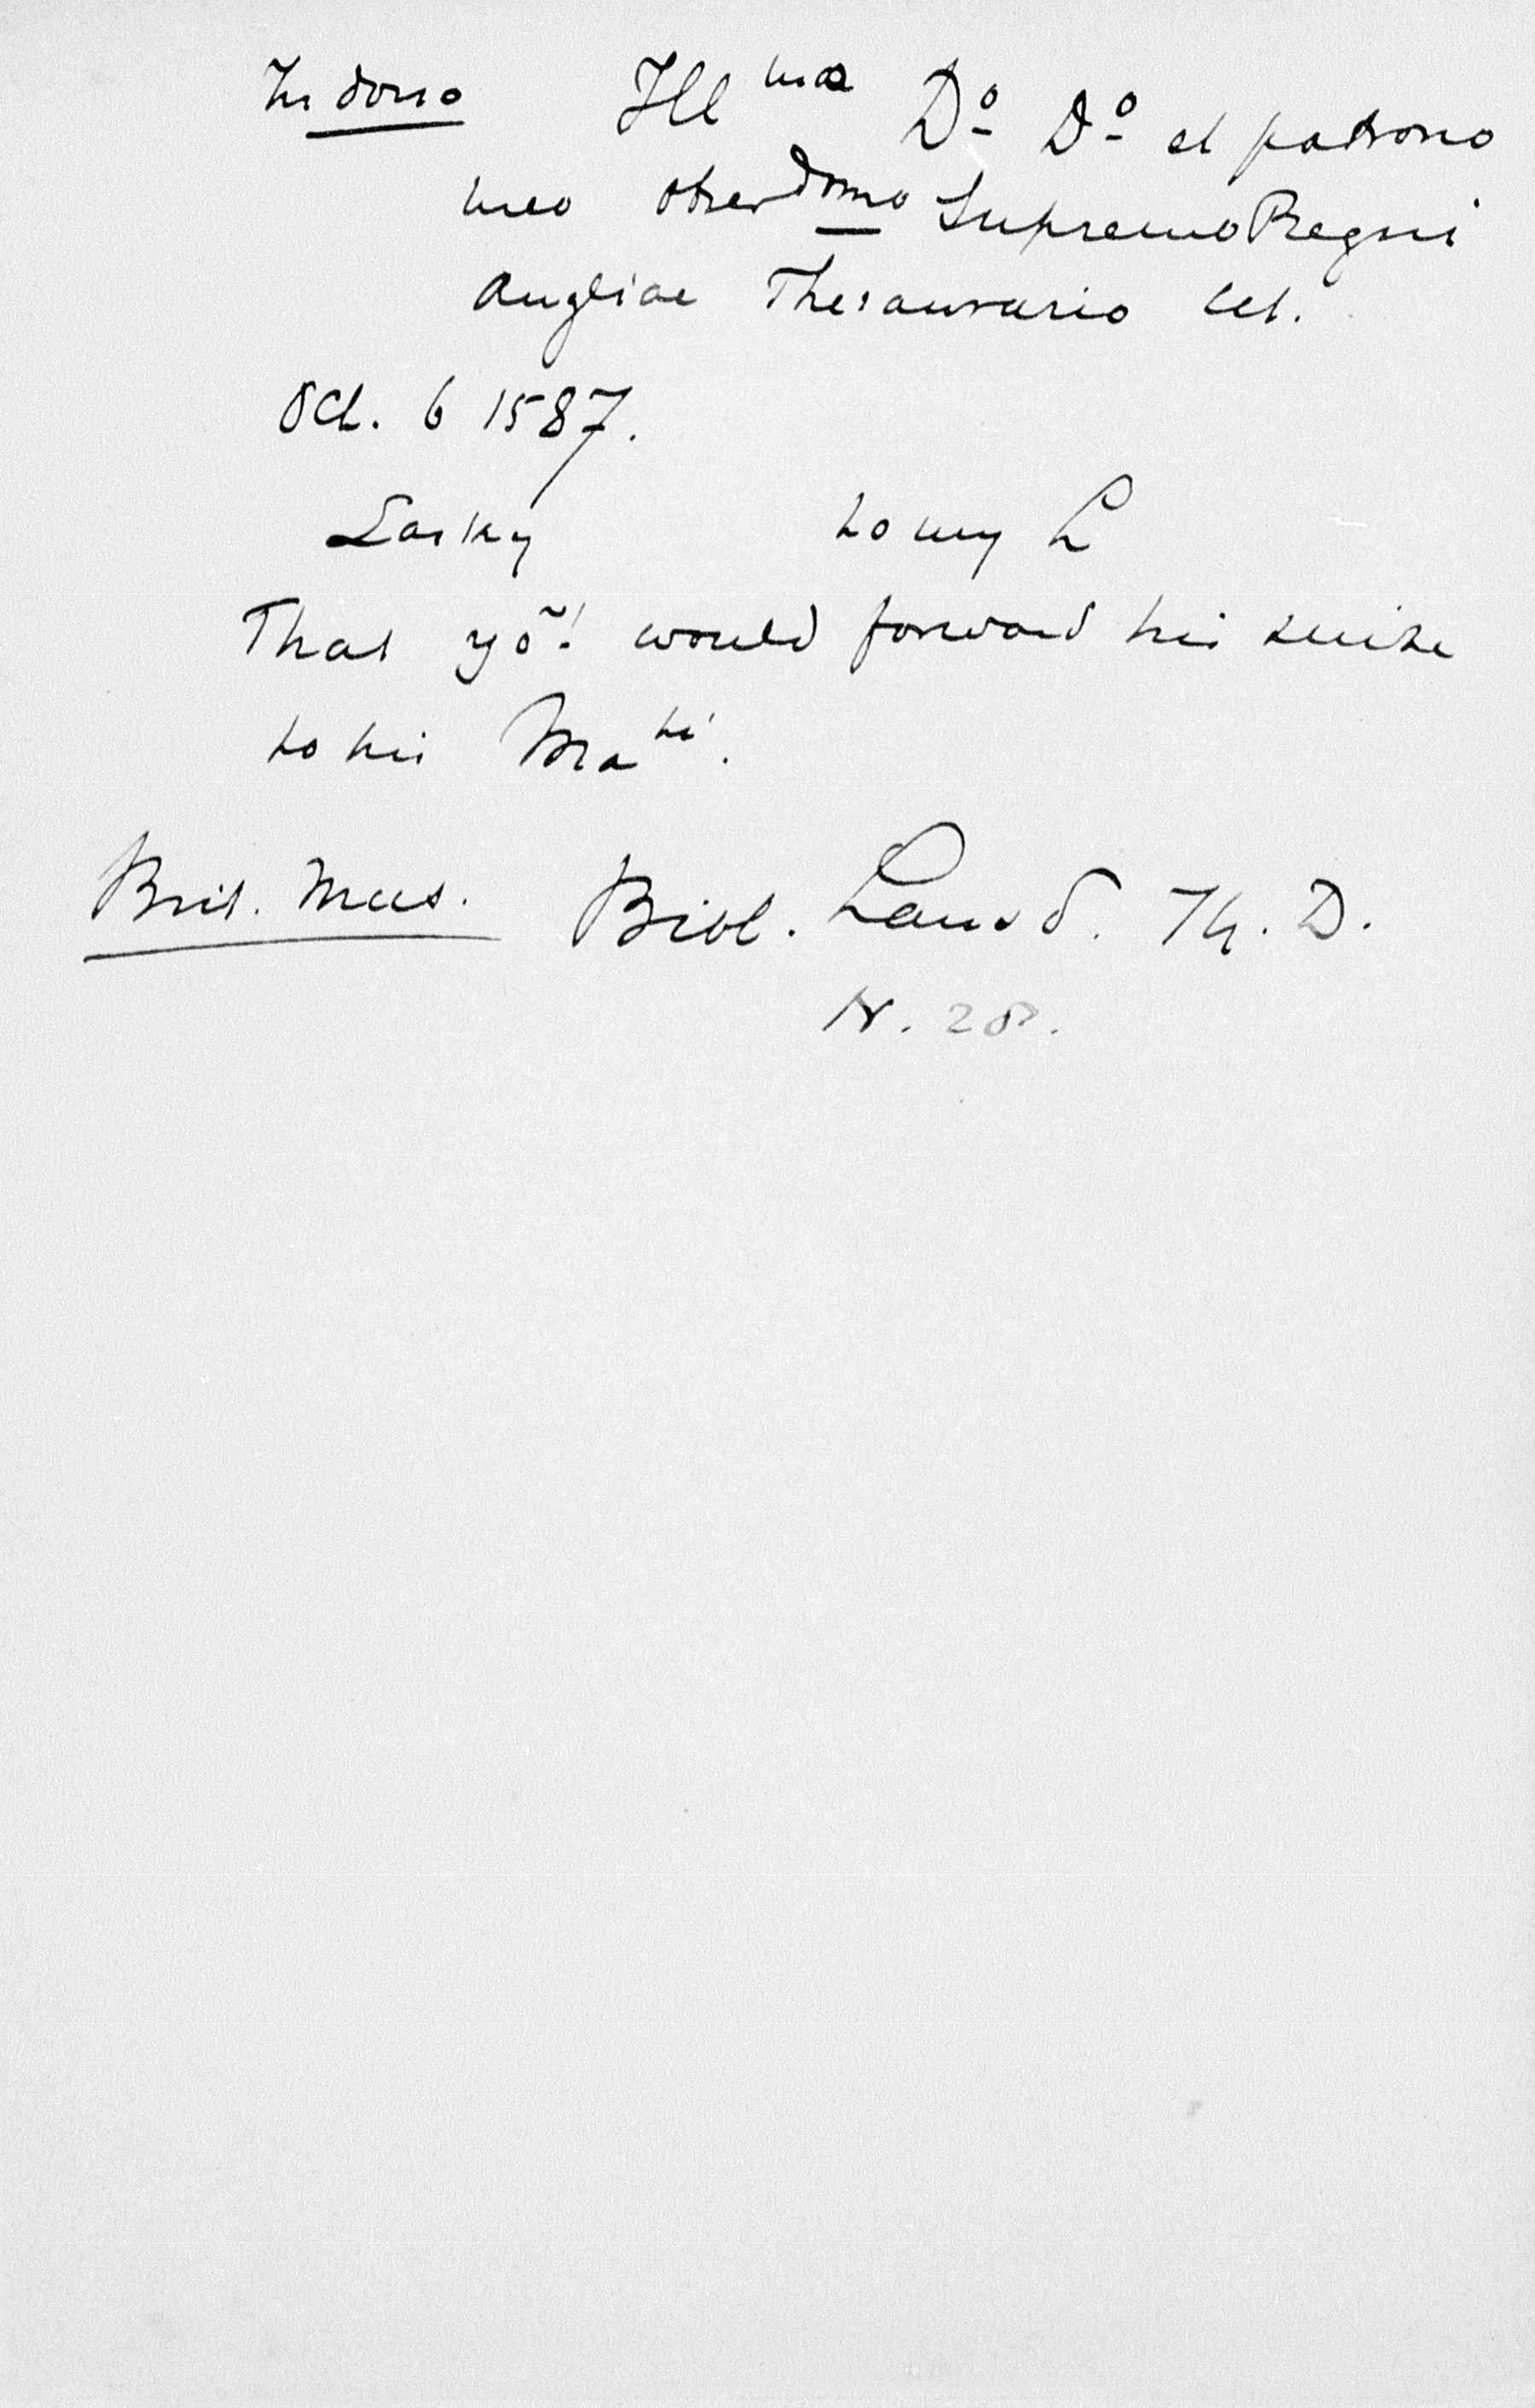 In dorso Ill mo Do Do et patrono
meo obser dmo Supremo Regni
Angliae Thesaurario cet.
Oct. 6 1587.
Lasky to my L
That yõ! would forward his suite
to his Ma tie.
Brit. Mus. Bibl. Lansd. Th. D.
N. 28.